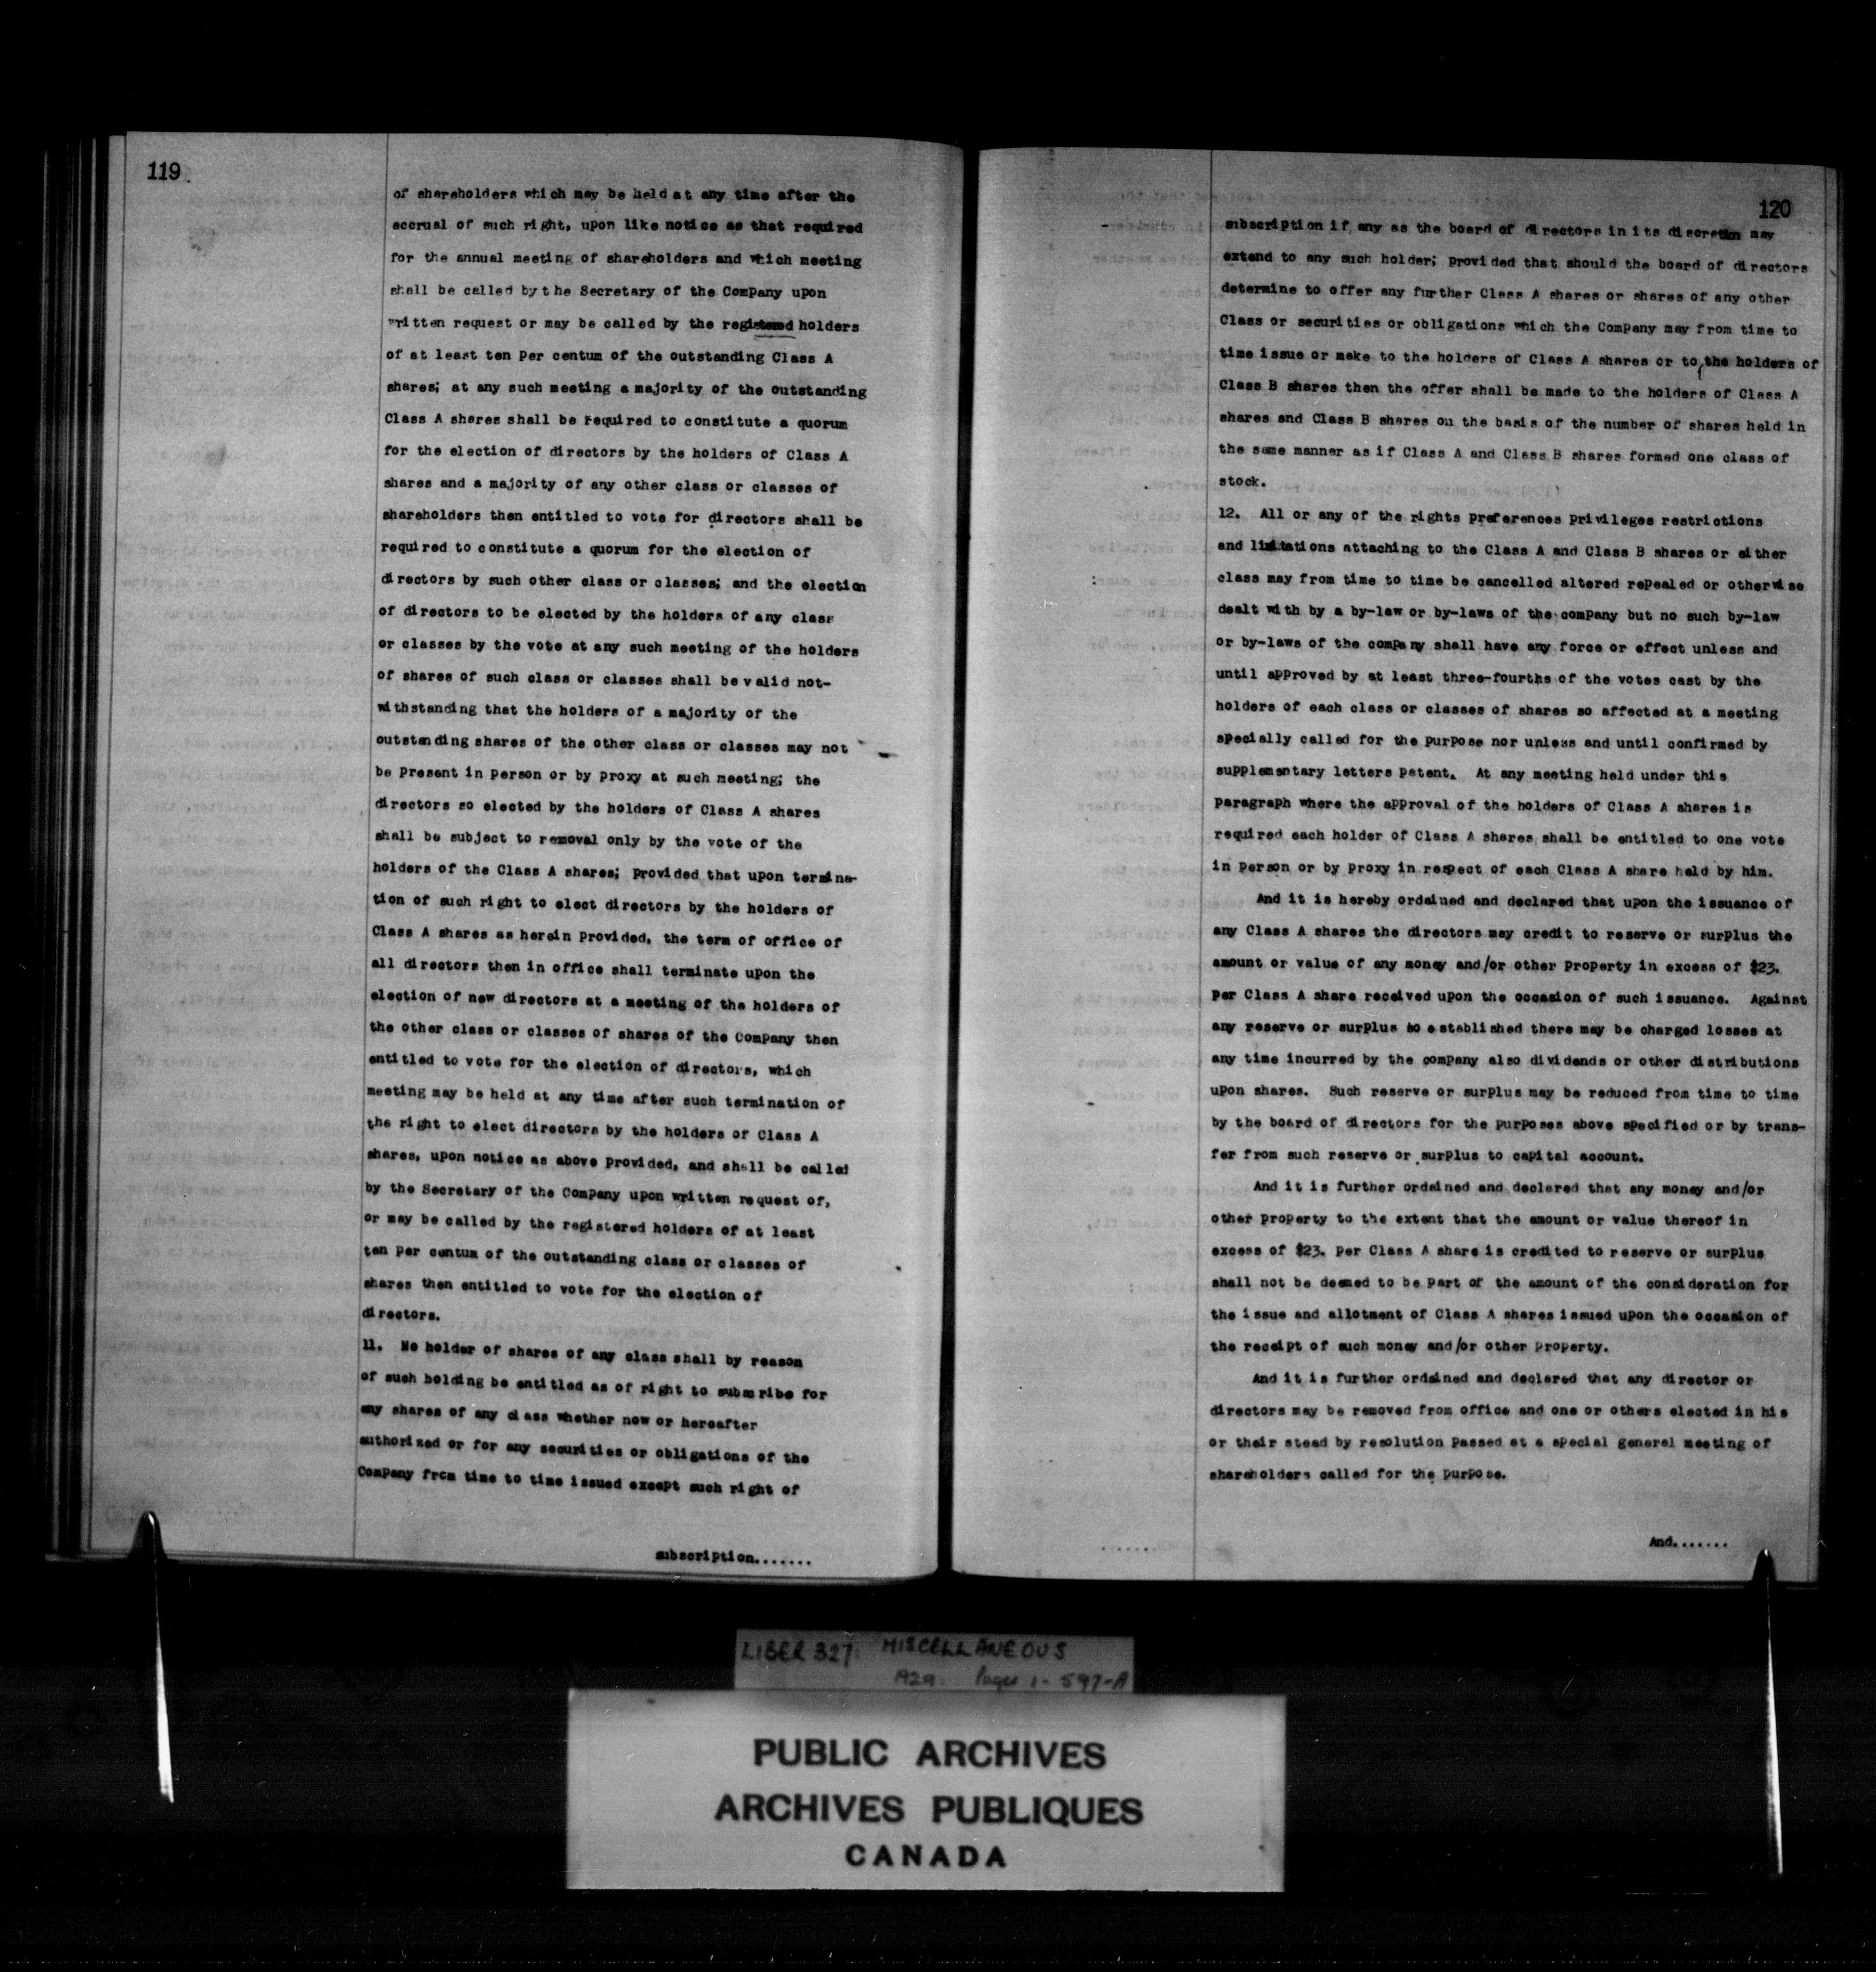 119
of shareholders which may be held at any time after the
accrual of such right, upon like notice as that required
for the annual meeting of shareholders and which meeting
shall be called by the Secretary of the Company upon
written request or may be called by the registered holders
of at least ten per centum of the outstanding Class A
shares; at any such meeting a majority of the outstanding
Class A shares shall be required to constitute a quorum
for the election of directors by the holders of Class A
shares and a majority of any other class or classes of
shareholders then entitled to vote for directors shall be
required to constitute a quorum for the election of
directors by such other class or classes; and the election
of directors to be elected by the holders of any class
or classes by the vote at any such meeting of the holders
of shares of such class or classes shall be valid not-
withstanding that the holders of a majority of the
outstanding shares of the other class or classes may not
be present in person or by proxy at such meeting; the
directors so elected by the holders of Class A shares
shall be subject to removal only by the vote of the
holders of the Class A shares; provided that upon termina-
tion of such right to elect directors by the holders of
Class A shares as herein provided, the term of office of
all directors then in office shall terminate upon the
election of new directors at a meeting of the holders of
the other class or classes of shares of the Company then
entitled to vote for the election of directors, which
meeting may be held at any time after such termination of
the right to elect directors by the holders of Class A
shares, upon notice as above provided, and shall be called
by the Secretary of the Company upon written request of,
or may be called by the registered holders of at least
ten per centum of the outstanding class or classes of
shares then entitled to vote for the election of
directors.
11. No holder of shares of any class shall by reason
of such holding be entitled as of right to subscribe for
any shares of any class whether now or hereafter
authorized or for any securities or obligations of the
Company from time to time issued except such right of
subscription.......
120
subscription if any as the board of directors in its discretion may
extend to any such holder; provided that should the board of directors
determine to offer any further Class A shares or shares of any other
Class or securities or obligations which the Company may from time to
time issue or make to the holders of Class A shares or to the holders of
Class B shares then the offer shall be made to the holders of Class A
shares and Class B shares on the basis of the number of shares held in
the same manner as if Class A and Class B shares formed one class of
stock.
12. All or any of the rights preferences privileges restrictions
and limitations attaching to the Class A and Class B shares or either
class may from time to time be cancelled altered repealed or otherwise
dealt with by a by-law or by-laws of the company but no such by-law
or by-laws of the company shall have any force or effect unless and
until approved by at least three-fourths of the votes cast by the
holders of each class or classes of shares so affected at a meeting
specially called for the purpose nor unless and until confirmed by
supplementary letters patent. At any meeting held under this
paragraph where the approval of the holders of Class A shares is
required each holder of Class A shares shall be entitled to one vote
in person or by proxy in respect of each Class A share held by him.
And it is hereby ordained and declared that upon the issuance of
any Class A shares the directors may credit to reserve or surplus the
amount or value of any money and/or other property in excess of $23.
per Class A share received upon the occasion of such issuance. Against
any reserve or surplus so established there may be charged losses at
any time incurred by the company also dividends or other distributions
upon shares. Such reserve or surplus may be reduced from time to time
by the board of directors for the purposes above specified or by trans-
fer from such reserve or surplus to capital account.
And it is further ordained and declared that any money and/or
other property to the extent that the amount or value thereof in
excess of $23. per Class A share is credited to reserve or surplus
shall not be deemed to be part of the amount of the consideration for
the issue and allotment of Class A shares issued upon the occasion of
the receipt of such money and/or other property.
And it is further ordained and declared that any director or
directors may be removed from office and one or others elected in his
or their stead by resolution passed at a special general meeting of
shareholders called for the purpose.
And.......
LIBER 327. MISCELLANEOUS
1929. Pages 1-597-A
PUBLIC ARCHIVES
ARCHIVES PUBLIQUES
CANADA